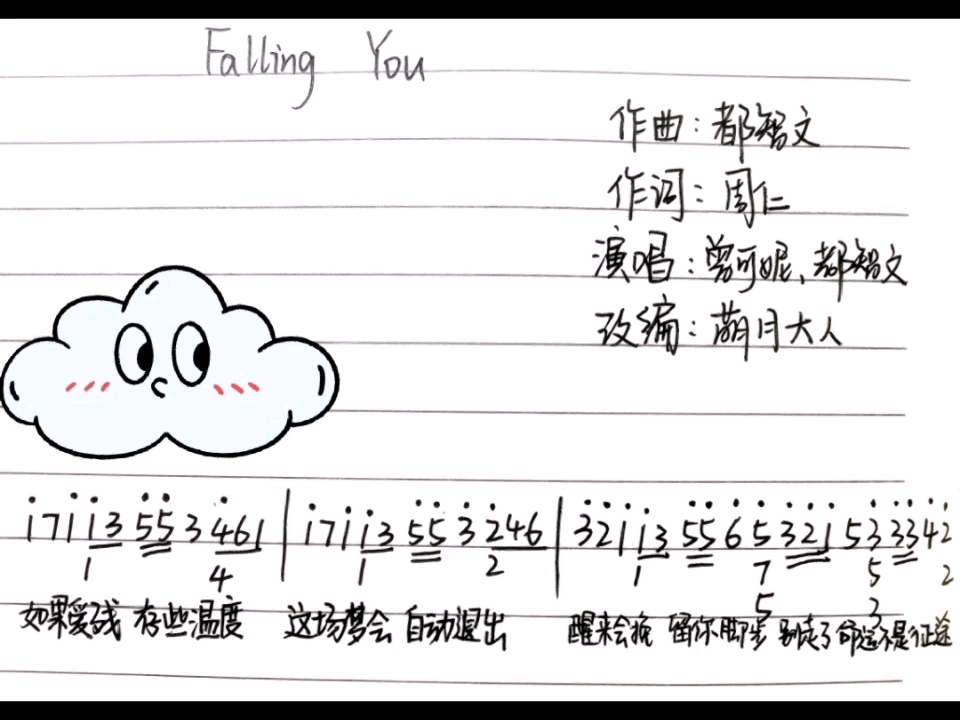 Falling You
作曲：都智文
作词：周仁
演唱：曾可妮、都智文
改编：萌月大人
1711355 3461 | 1711355 3246 | 321135565321533342
1 4 1 2 1 7 5 2
5 3
如果爱残 存些温度 这场梦会 自动退出 醒来会挽 留你脚步 别走了 命运不是征途